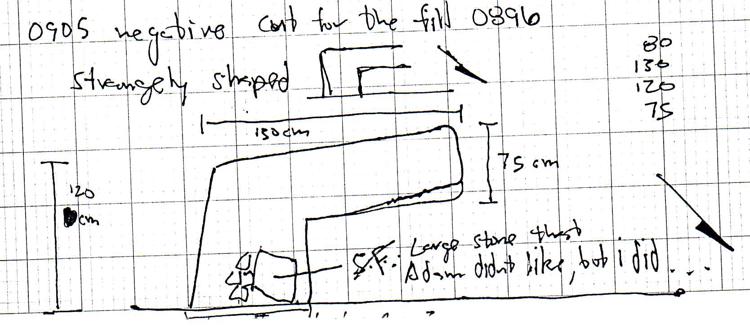 0905 negative cut for the fill 0896
strangely shaped
80
130
120
75
130cm
75 cm
120
cm
S.F.: Large stone that
Adam didn't like, but i did ...